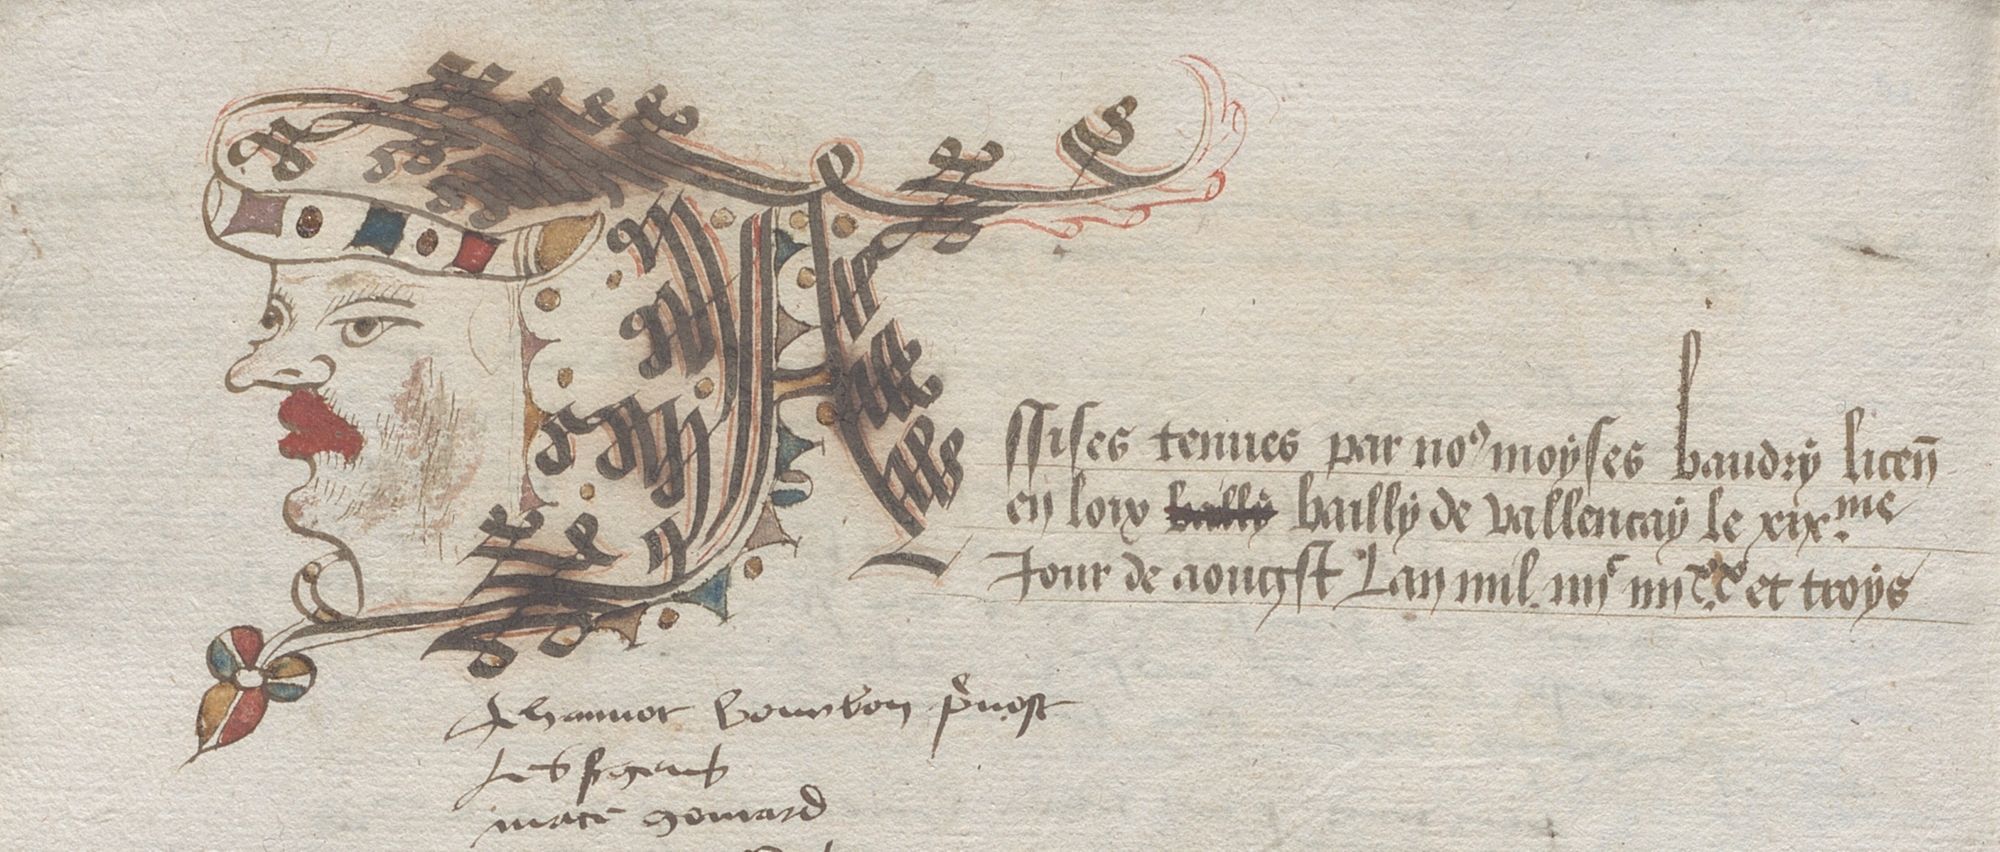 Assises tenues par no9 moyses baudry licen̄
en loix bailly bailly de vallencay le xix.me
Jour de aougst Lan mil. iiijc iiijxx et troys
Jehannot bourbon p̄uost
Les sergens
mace gomard